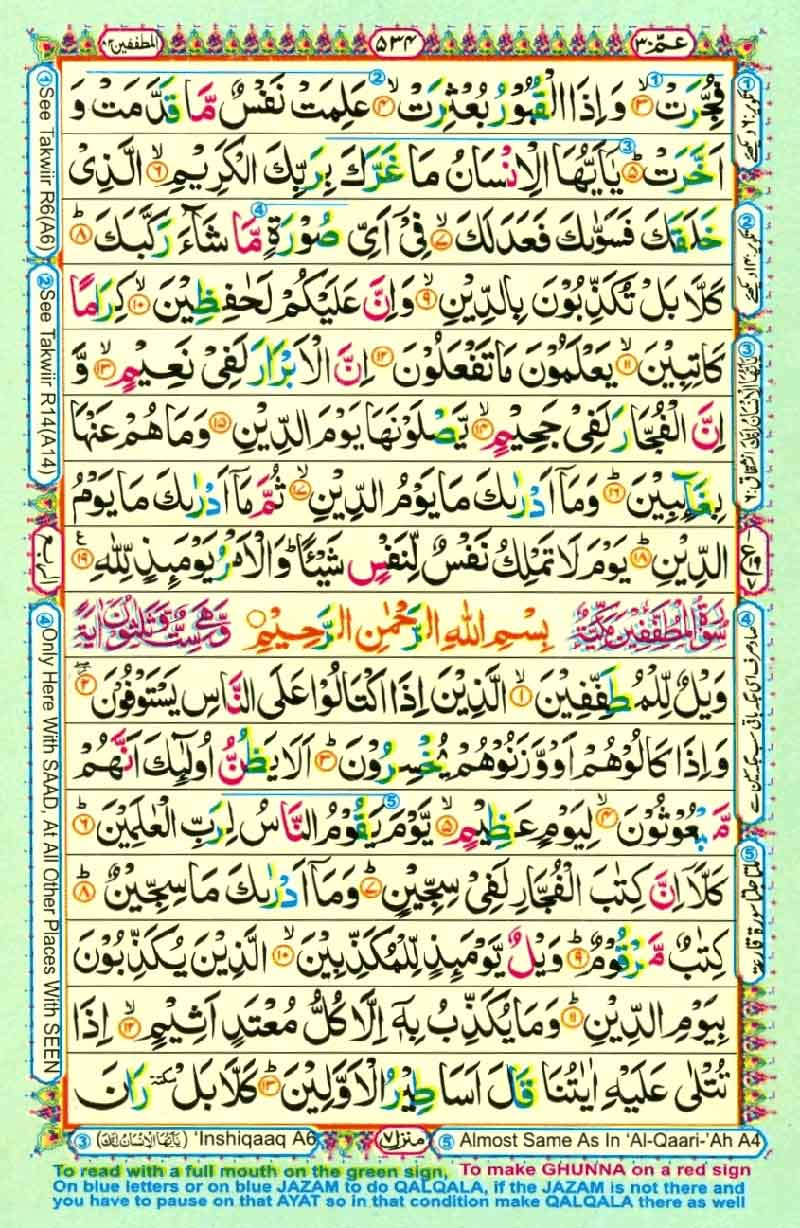 عمّ ۳۰
۵۳۴
المطففين ۸۳
فُجِّرَتْ ۙ﴿۳﴾ وَاِذَا الْقُبُوْرُ بُعْثِرَتْ ۙ﴿۴﴾ عَلِمَتْ نَفْسٌ مَّا قَدَّمَتْ وَ
اَخَّرَتْ ؕ﴿۵﴾ یٰۤاَیُّهَا الْاِنْسَانُ مَا غَرَّكَ بِرَبِّكَ الْكَرِیْمِ ۙ﴿۶﴾ الَّذِیْ
خَلَقَكَ فَسَوّٰىكَ فَعَدَلَكَ ۙ﴿۷﴾ فِیْۤ اَیِّ صُوْرَةٍ مَّا شَآءَ رَكَّبَكَ ؕ﴿۸﴾
كَلَّا بَلْ تُكَذِّبُوْنَ بِالدِّیْنِ ۙ﴿۹﴾ وَاِنَّ عَلَیْكُمْ لَحٰفِظِیْنَ ۙ﴿۱۰﴾ كِرَامًا
كَاتِبِیْنَ ۙ﴿۱۱﴾ یَعْلَمُوْنَ مَا تَفْعَلُوْنَ ﴿۱۲﴾ اِنَّ الْاَبْرَارَ لَفِیْ نَعِیْمٍ ۙ﴿۱۳﴾ وَّ
اِنَّ الْفُجَّارَ لَفِیْ جَحِیْمٍ ۚۖ﴿۱۴﴾ یَّصْلَوْنَهَا یَوْمَ الدِّیْنِ ﴿۱۵﴾ وَمَا هُمْ عَنْهَا
بِغَآىِٕبِیْنَ ؕ﴿۱۶﴾ وَمَاۤ اَدْرٰىكَ مَا یَوْمُ الدِّیْنِ ۙ﴿۱۷﴾ ثُمَّ مَاۤ اَدْرٰىكَ مَا یَوْمُ
الدِّیْنِ ؕ﴿۱۸﴾ یَوْمَ لَا تَمْلِكُ نَفْسٌ لِّنَفْسٍ شَیْـًٔا ؕ وَالْاَمْرُ یَوْمَىِٕذٍ لِّلّٰهِ ﴿۱۹﴾ ع
سُوْرَةُ الْمُطَفِّفِیْنَ مَكِّیَّةٌ بِسْمِ اللّٰهِ الرَّحْمٰنِ الرَّحِیْمِ وَّهِیَ سِتٌّ وَّثَلٰثُوْنَ اٰیَةً
وَیْلٌ لِّلْمُطَفِّفِیْنَ ۙ﴿۱﴾ الَّذِیْنَ اِذَا اكْتَالُوْا عَلَی النَّاسِ یَسْتَوْفُوْنَ ؗۖ﴿۲﴾
وَاِذَا كَالُوْهُمْ اَوْ وَّزَنُوْهُمْ یُخْسِرُوْنَ ؕ﴿۳﴾ اَلَا یَظُنُّ اُولٰٓىِٕكَ اَنَّهُمْ
مَّبْعُوْثُوْنَ ۙ﴿۴﴾ لِیَوْمٍ عَظِیْمٍ ۙ﴿۵﴾ یَّوْمَ یَقُوْمُ النَّاسُ لِرَبِّ الْعٰلَمِیْنَ ؕ﴿۶﴾
كَلَّاۤ اِنَّ كِتٰبَ الْفُجَّارِ لَفِیْ سِجِّیْنٍ ؕ﴿۷﴾ وَمَاۤ اَدْرٰىكَ مَا سِجِّیْنٌ ؕ﴿۸﴾
كِتٰبٌ مَّرْقُوْمٌ ؕ﴿۹﴾ وَیْلٌ یَّوْمَىِٕذٍ لِّلْمُكَذِّبِیْنَ ۙ﴿۱۰﴾ الَّذِیْنَ یُكَذِّبُوْنَ
بِیَوْمِ الدِّیْنِ ؕ﴿۱۱﴾ وَمَا یُكَذِّبُ بِهٖۤ اِلَّا كُلُّ مُعْتَدٍ اَثِیْمٍ ۙ﴿۱۲﴾ اِذَا
تُتْلٰی عَلَیْهِ اٰیٰتُنَا قَالَ اَسَاطِیْرُ الْاَوَّلِیْنَ ؕ﴿۱۳﴾ كَلَّا بَلْ ٚ سكته رَانَ
① See Takwiir R6(A6)
② See Takwiir R14(A14)
الربع
④ Only Here With SAAD, At All Other Places With SEEN
③ (یٰۤاَیُّهَا الْاِنْسَانُ اِنَّكَ) 'Inshiqaaq A6
منزل ۷
⑤ Almost Same As In 'Al-Qaari-'Ah A4
To read with a full mouth on the green sign, To make GHUNNA on a red sign
On blue letters or on blue JAZAM to do QALQALA, if the JAZAM is not there and
you have to pause on that AYAT so in that condition make QALQALA there as well